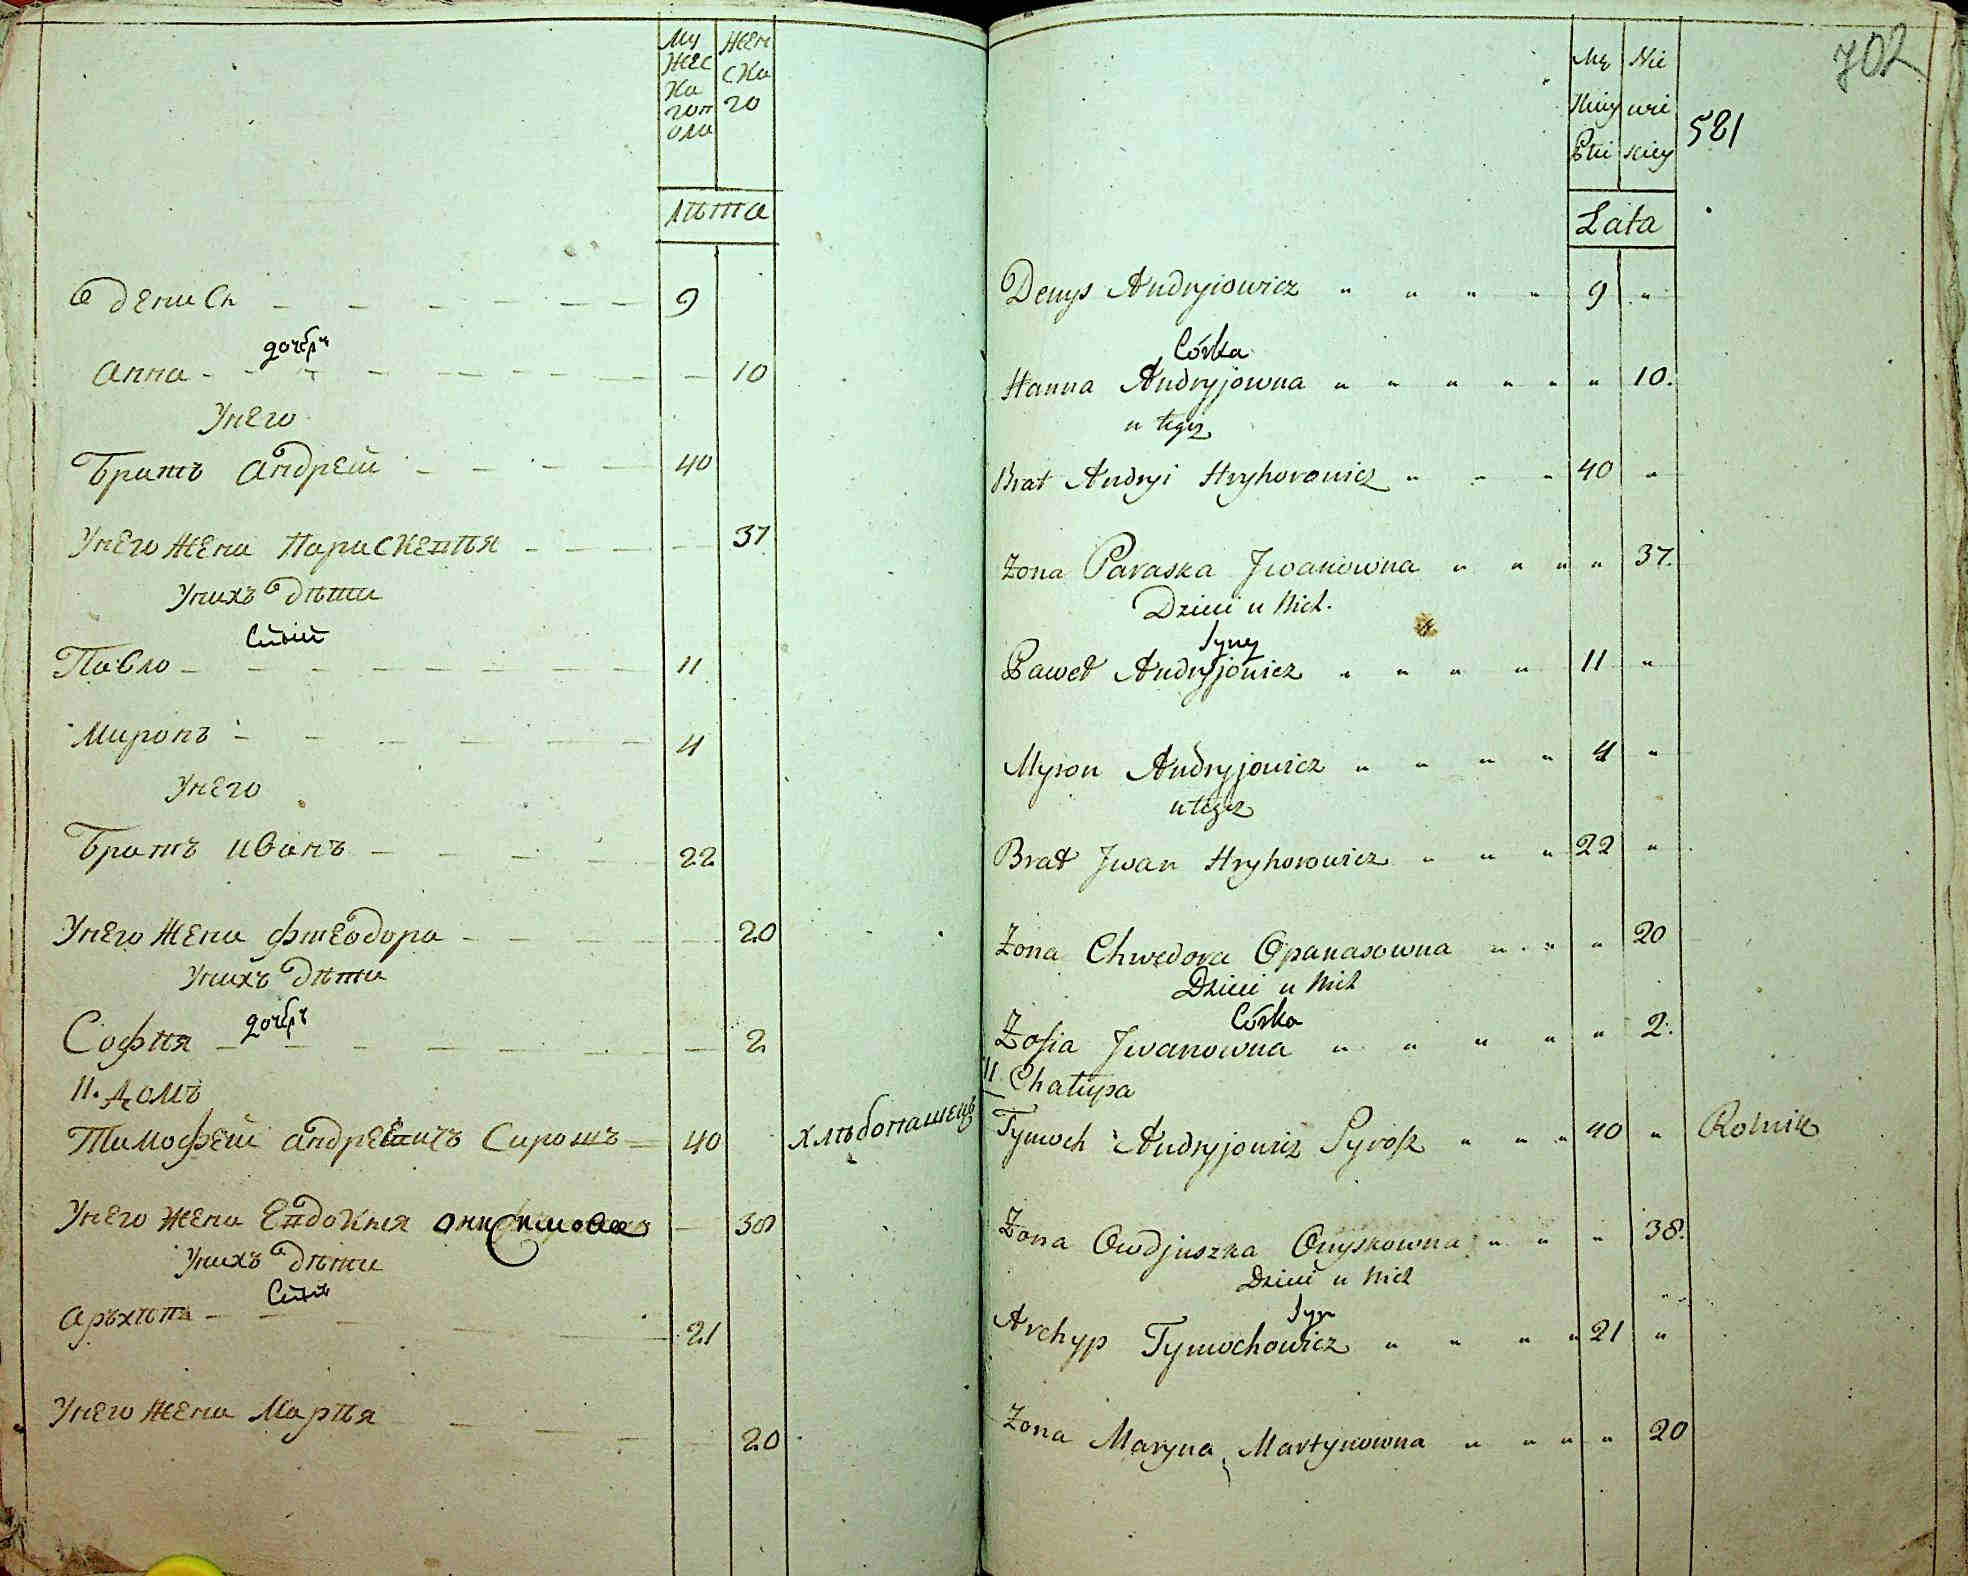 Му
жес
ка
гоп
ола
Жен
ска
го
лѣта
Денисъ 9
дочерь
Анна 10
Унего
Братъ Андрей 40
Унего Жена Параскевия 37
Унихъ Дѣти
Сыни
Павло 11
Миронъ 4
Унего
Братъ Иванъ 22
Унего Жена Фтеодора 20
Унихъ Дѣти
дочерь
София 2
11. Домъ
Тимофей Андреевичъ Сирошъ 40 хлѣбопашецъ
Унего Жена Евдокия 38
Унихъ Дѣти
Сынъ
Архипъ 21
Унего Жена Мария 20
702
581
Lata
Denys Andryiowicz " " " " 9 "
Córka
Hanna Andryjowna " " " " " " 10.
u tegoż
Brat Andryi Hryhorowicz " " " 40 "
Żona Paraska Jwanowna " " " " 37.
Dzieci u Nich.
Syny
Paweł Andryjowicz " " " " 11 "
Myron Andryjowicz " " " " 4 "
u tegoż
Brat Jwan Hryhorowicz " " " 22 "
Żona Chwedora Opanasowna " " " 20
Dzieci u Nich
Córka
Zofia Jwanowna " " " " " 2.
11 Chałupa
Tymoch Andryjowicz Syrosz " " " 40 " Rolnik
Żona Owdjuszka Onyskowna " " " 38.
Dzieci u Nich
Syn
Archyp Tymochowicz " " " " 21 "
Żona Maryna Martynowna " " " " 20